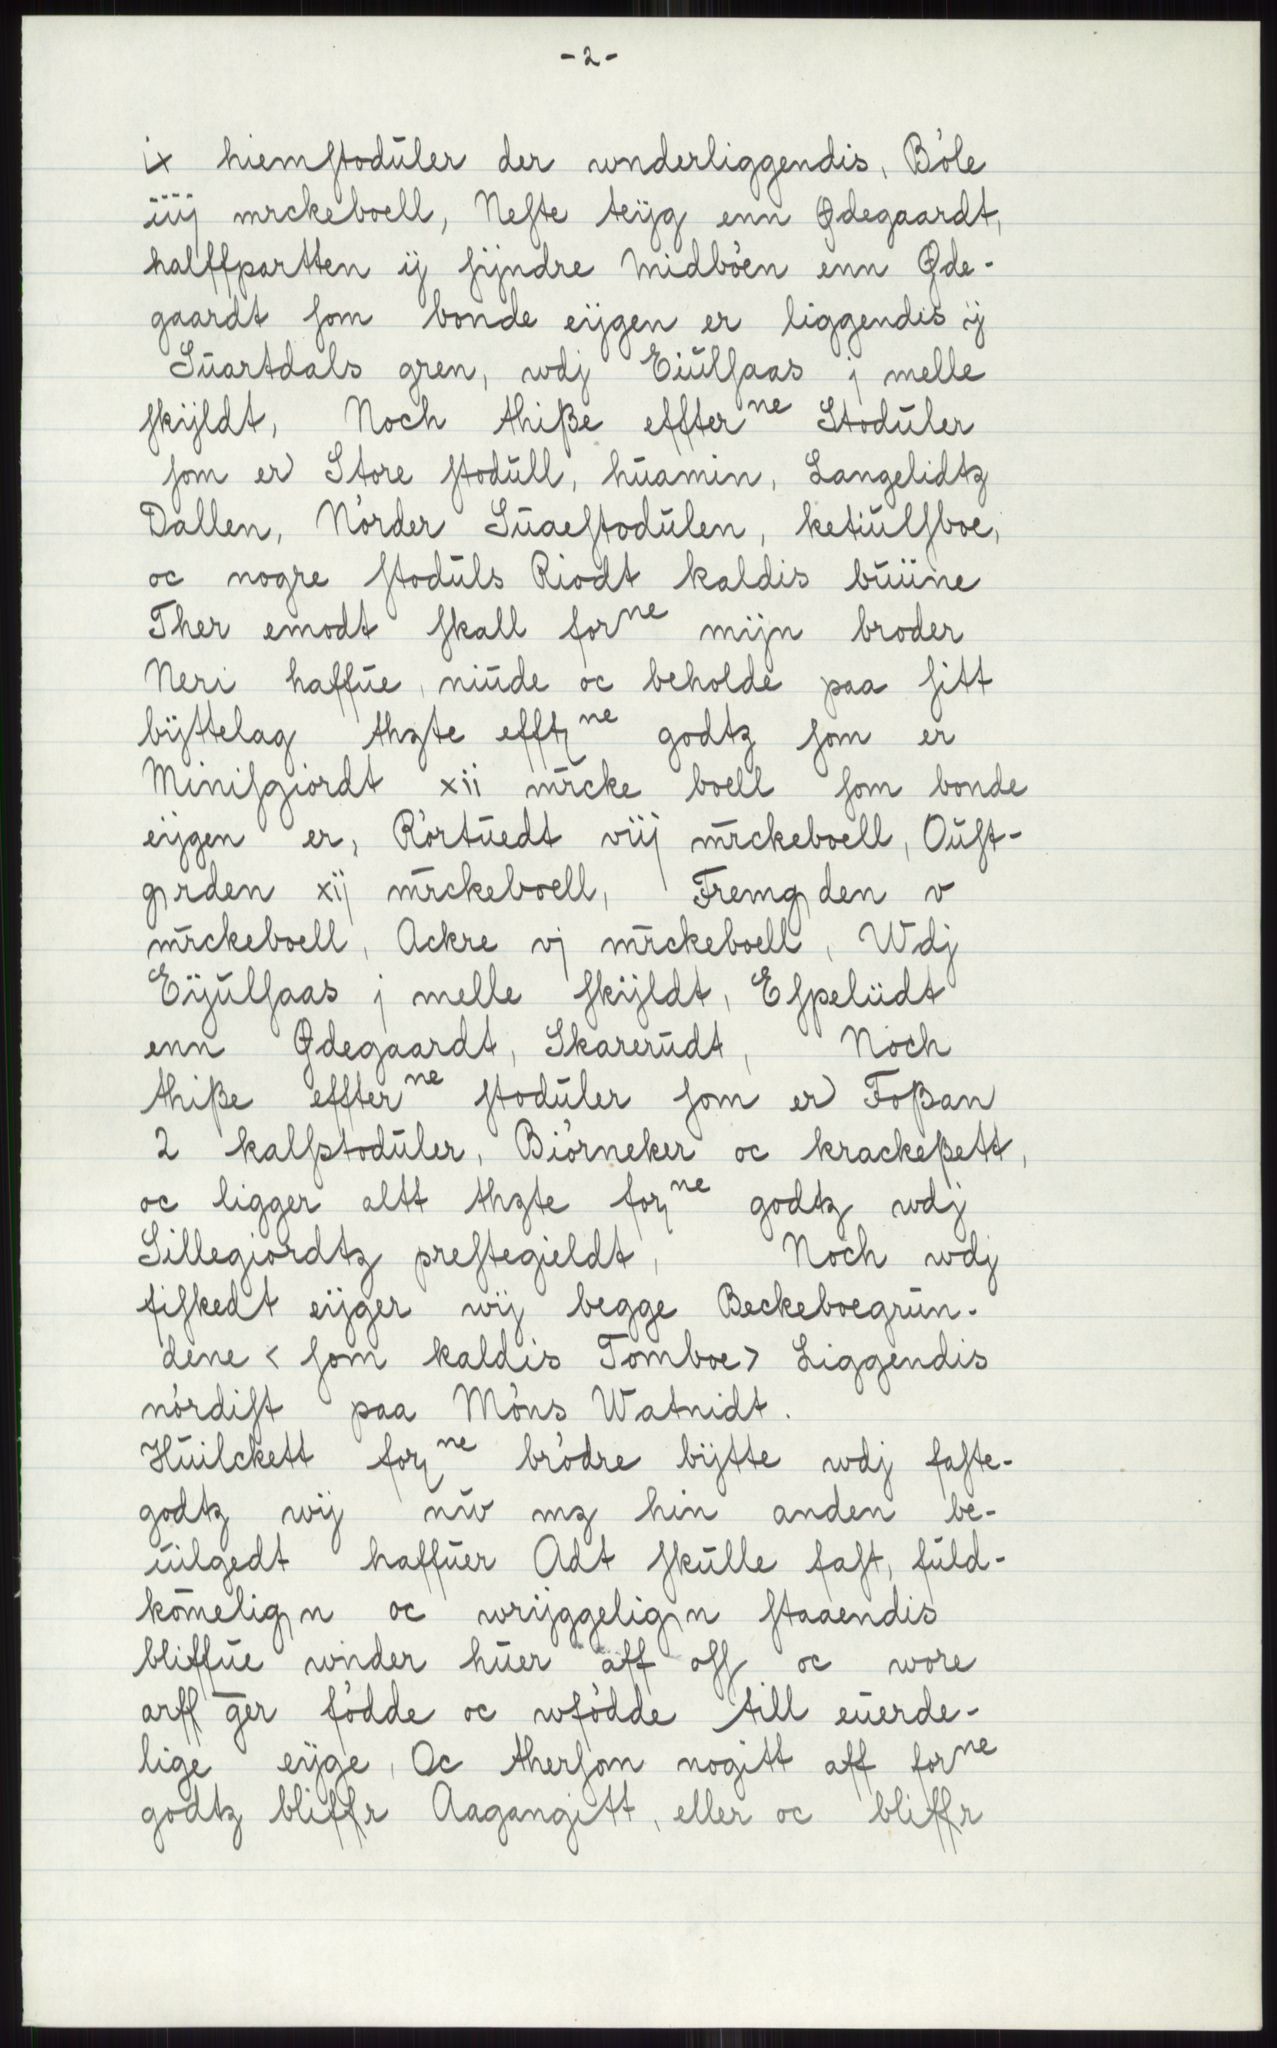 - 2 -
ix hiemstodūler der wnderliggendis, Bóle
iiij mrckeboell, Neste teÿg enn Ødegaardt,
halffpartten ij sijndre Midbóen enn Øde-
gaardt som bonde eijgen er liggendis ij
Sūartdals gren, wdj Eiūlsaas j melle
skijldt, Noch thiße effterⁿᵉ Stodūler
som er Store stodūll, hūamin, Langelidtz
Dallen, Nórder Sūaestodūlen, ketiūlsboe,
oc nogre stodūls Riodt kaldis būūne
Ther emodt skall forⁿᵉ mijn broder
Neri haffūe, niūde oc beholde paa sitt
bÿttelag thzte efftⁿᵉ godtz som er
Minisgiordt xii mr̄cke boell som bonde
eijgen er, Rórtūedt viij mr̄ckeboell, Oūst-
grden xij mr̄ckeboell, Fremgden v
mr̄ckeboell, Ackre vj mr̄ckeboell, Wdj
Eijūlsaas j melle skijldt, Espeliidt
enn Ødegaardt, Skarerūdt, Noch
thiße effterⁿᵉ stodūler som er Foßan
2 kalfstodūler, Biórneker oc krackeßett,
oc ligger altt thzte forⁿᵉ godtz wdj
Sillegiordtz prestegieldt, Noch wdj
fiskedt eijger wij begge Beckeboegrūn-
dene < som kaldis Tomboe > Liggendis
nórdist paa Móns Watnidt.
Hūilckett forⁿᵉ bródre bÿtte wdj faste-
godtz wij nūw mz hin anden be-
ūilgedt haffūer Adt skūlle fast, fūld-
kōmelign oc wrijggelign staaendis
bliffūe wnder hūer aff oss oc wore
arffger fódde oc wfódde till eūerde-
lige eÿge, Oc thersom nogitt aff forⁿᵉ
godtz bliffr Aagangitt, eller oc bliffr